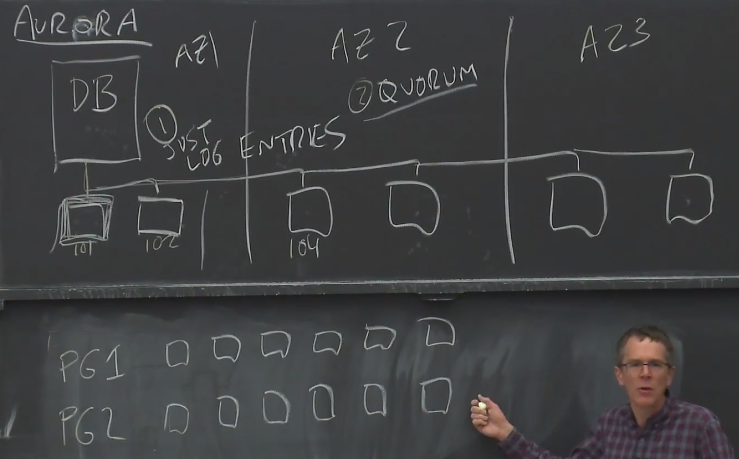 AURORA
AZ1
AZ2
AZ3
DB
① JUST LOG ENTRIES
② QUORUM
101
102
104
PG1
PG2